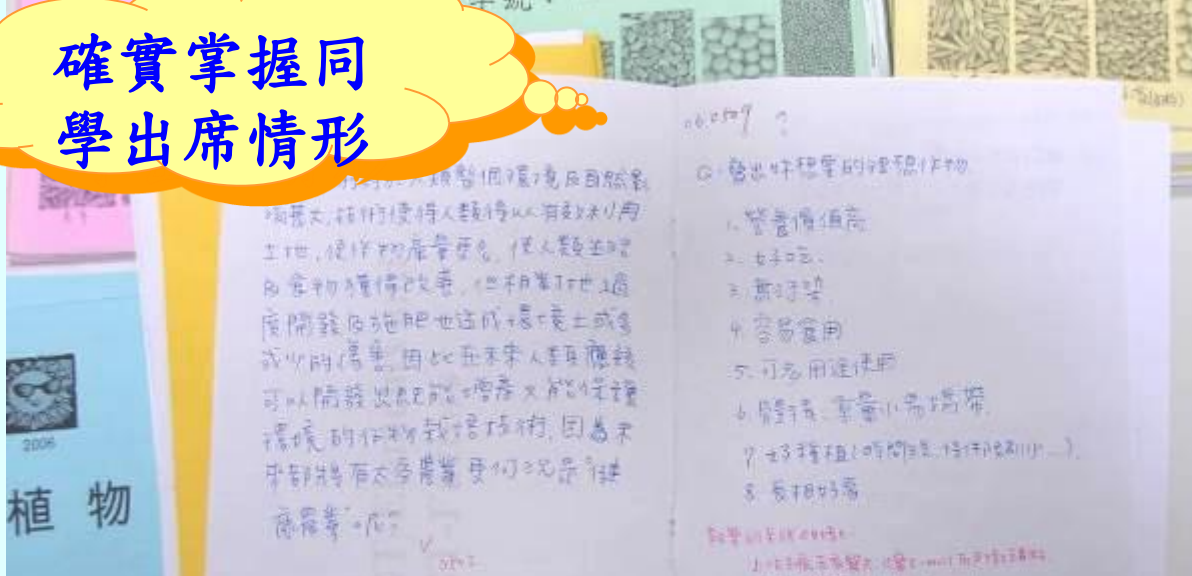 確實掌握同
學出席情形
人類整個環境及自然影
響甚大,技術使得人類得以有效利用
土地,使作物產量更多,使人類生活
及食物獲得改善,但相對地過
度開發及施肥也造成環境上或多
或少的傷害,因此在未來人類應該
可以開發出既能增產又能保護
環境的作物栽培技術,因為未
來都將有太空農業更何況是永續
農業呢?
060509
Q:發出妳想要的理想作物
1. 營養價值高
2. 好吃
3. 無污染
4. 容易食用
5. 可多用途使用
6. 體積、重量小易攜帶
7. 好種植(時間短、
8. 長相好看
2006
植物